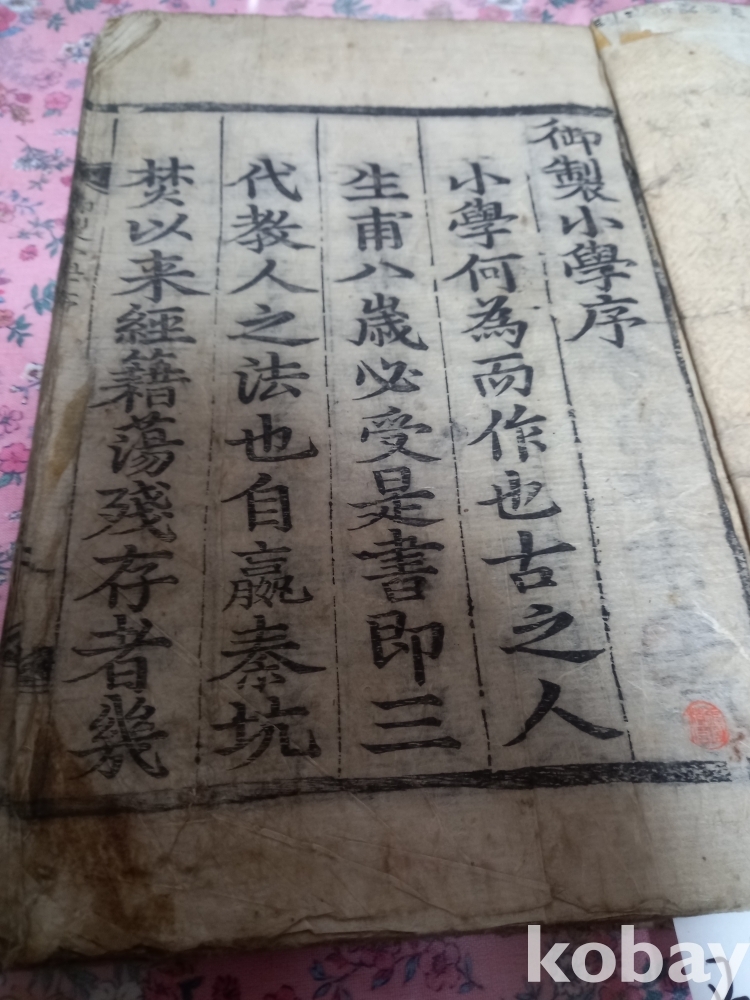 御製小學序
小學何為而作也古之人
生甫八歲必受是書即三
代教人之法也自嬴秦坑
焚以来經籍蕩殘存者幾
kobay